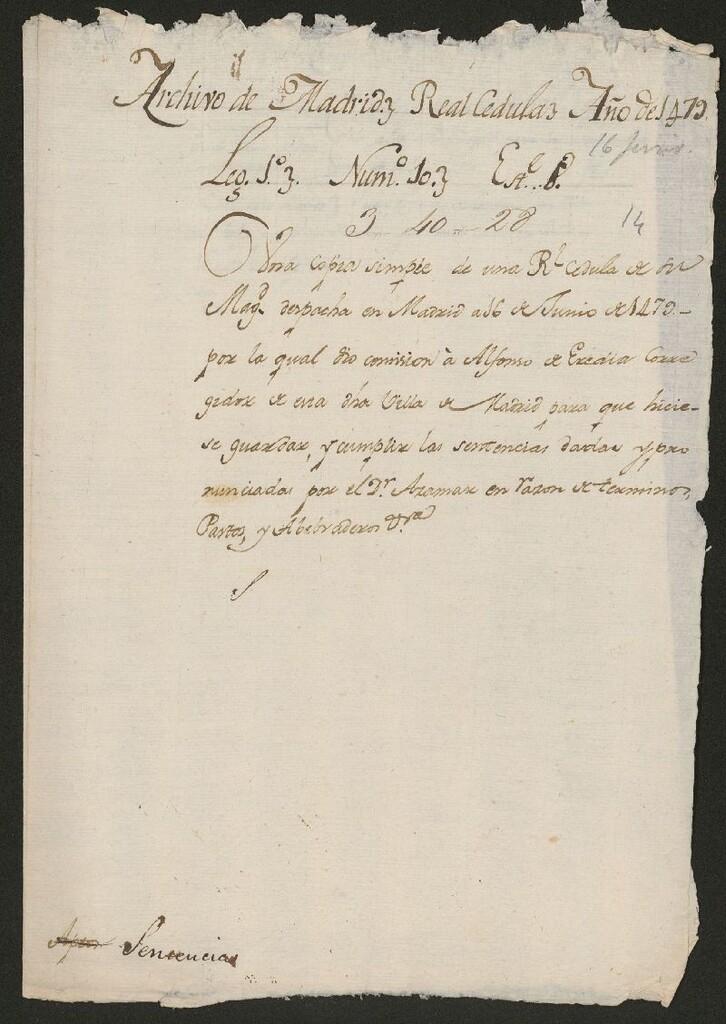 Archivo de Madrid, Real Cedula, Año de 1479.
16 junio.
Leg. 1.º Num.º 10. Est.e 1.º
3 40 28 14
Otra copia simple de una R.l Cedula de su
Mag.d despacha en Madrid a 16 de Junio de 1479.-
por la qual dio comision à Alfonso de Eredia Corre
gidor de esta dha Villa de Madrid para que hicie-
se guardar, y cumplir las sentencias dadas y pro
nunciadas por el D.r Aramar en razon de terminos,
Pastos, y Abebraderos &.ra
Sentencias